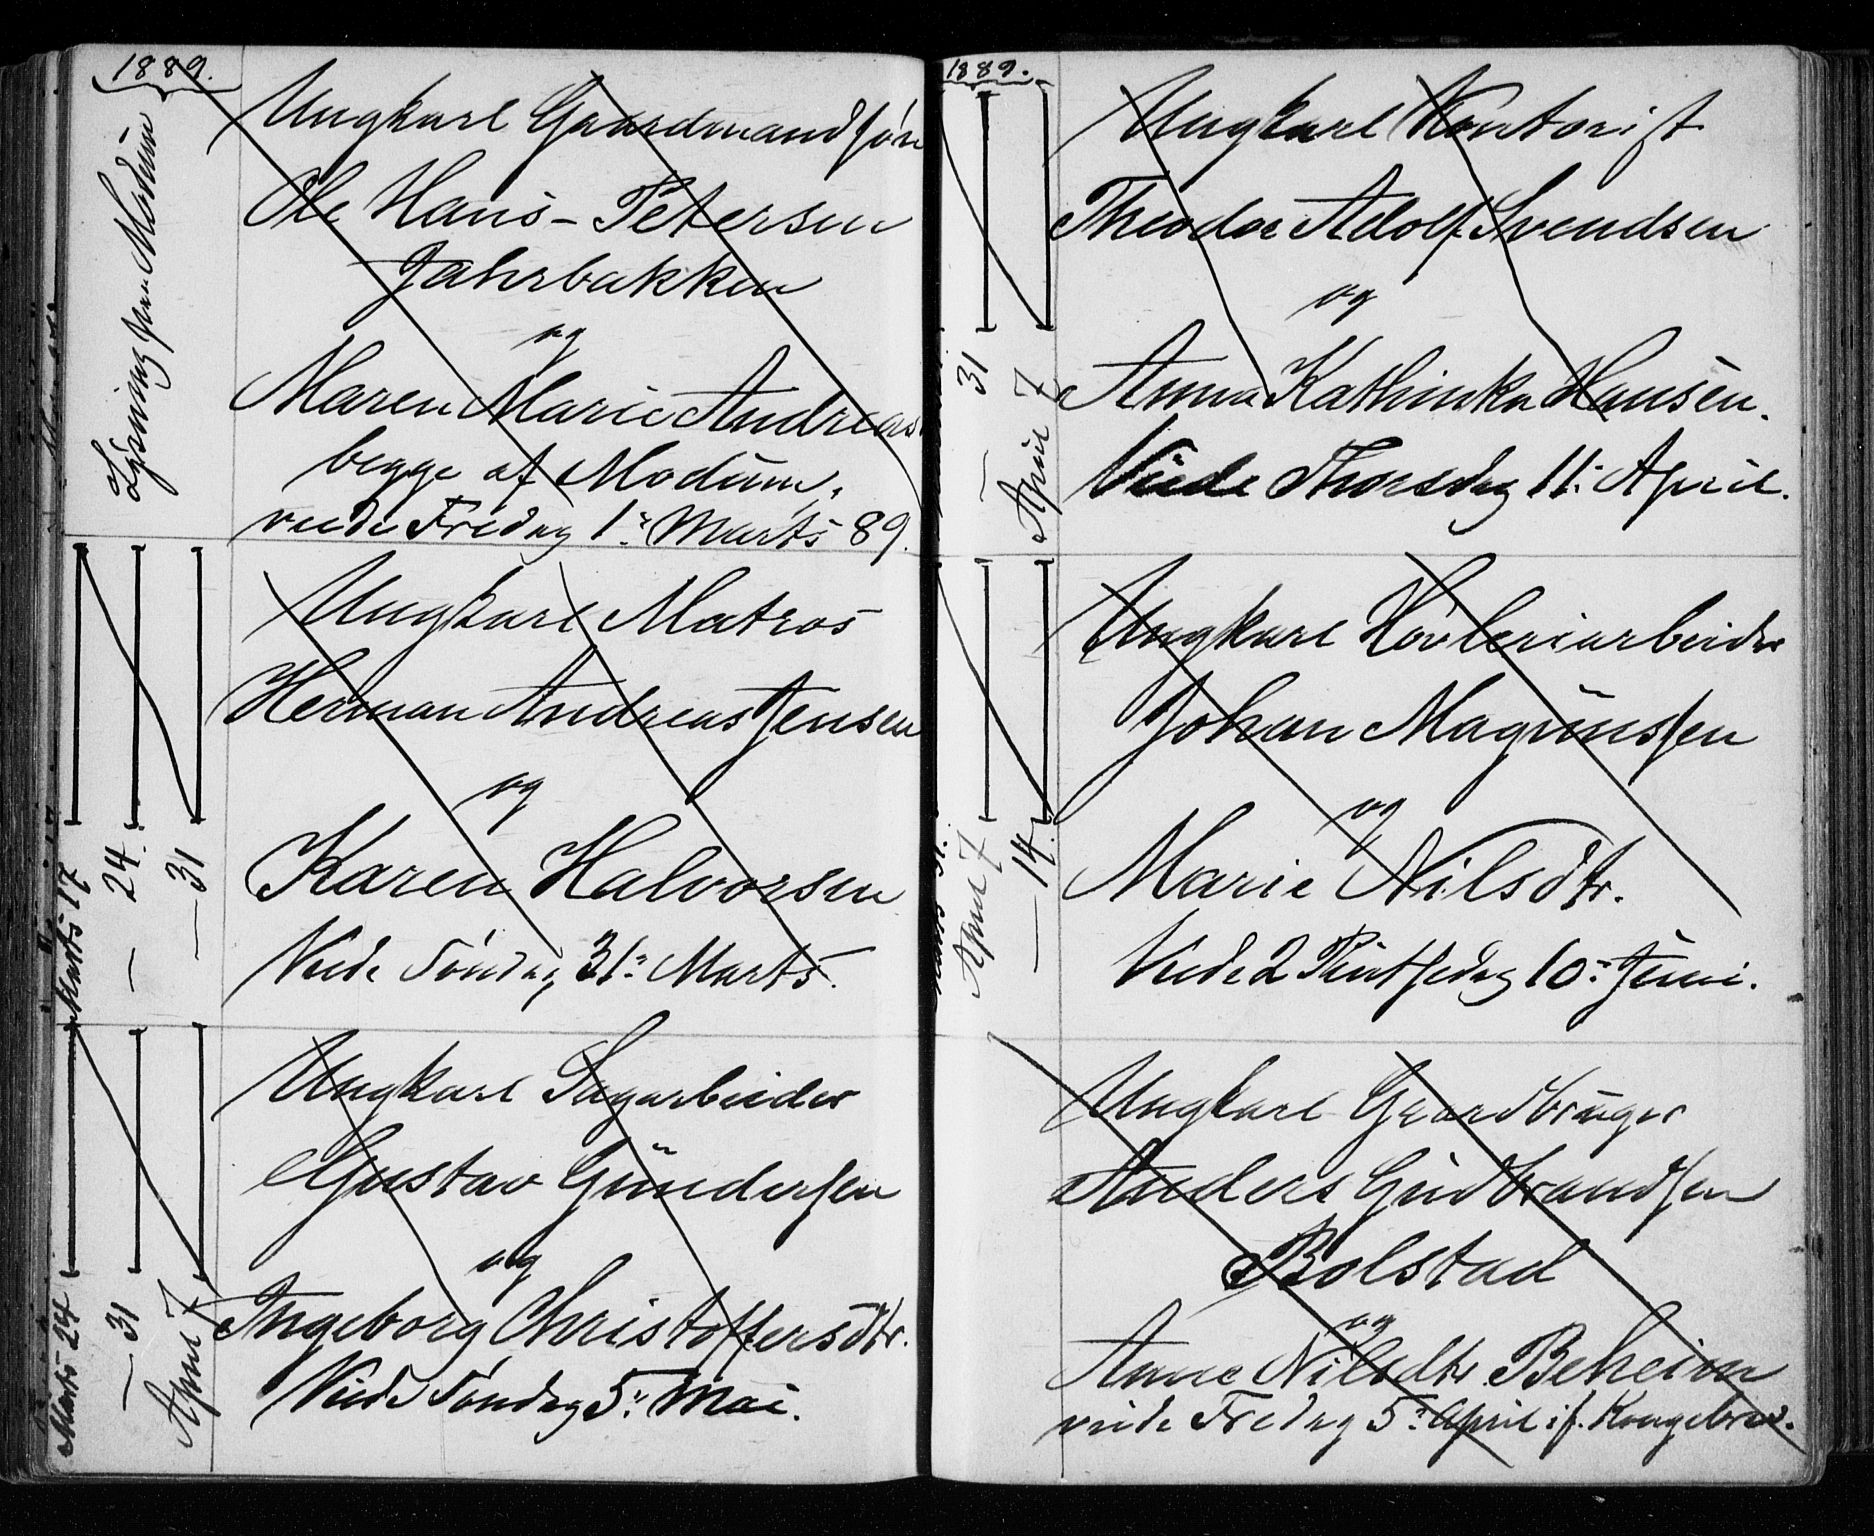 1889.
Lysning fra Modum
Ungkarl Gaardmandssøn
Ole Hans-Petersen
Jahrbakken
og
Maren Marie Andreas
begge af Modum,
viede Fredag 1: Marts 89.
Marts 17
— 24.
— 31
Ungkarl Matros
Herman Andreas Jensen
og
Karen Halvorsen
Viede Søndag 31: Marts.
Marts 24
— 31
April 7
Ungkarl Sagarbeider
Gustav Gundersen
og
Ingeborg Christoffersdtr.
Viede Søndag 5: Mai.
1889.
Marts 31.
— 31
April 7
Ungkarl Kontorist
Theodor Adolf Svendsen
og
Anna Kathinka Hansen.
Viede Thorsdag 11: April.
April 7
— 14.
Ungkarl Høvleriarbeider
Johan Magnussen
og
Marie Nilsdtr.
Viede 2 Pintsedag 10: Juni.
Ungkarl Gaardbruger
Anders Gudbrandsen
Bolstad
og
Anne Nilsdtr. Beheim
viede Fredag 5: April if. Kongebrev.